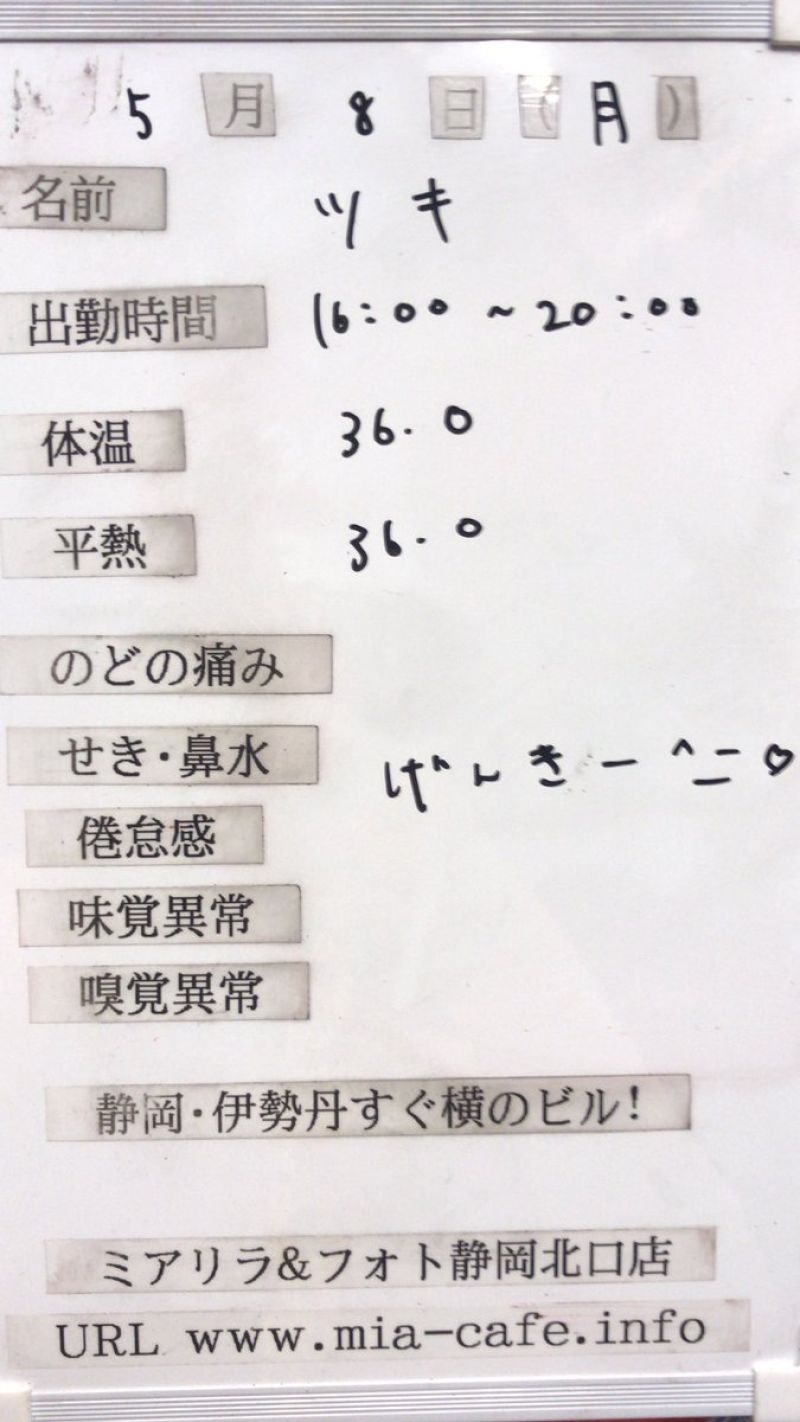 5月8日(月)
名前 ツキ
出勤時間 16:00~20:00
体温 36.0
平熱 36.0
のどの痛み
せき・鼻水 げんきー^ニ♡
倦怠感
味覚異常
嗅覚異常
静岡・伊勢丹すぐ横のビル!
ミアリラ&フォト静岡北口店
URL www.mia-cafe.info